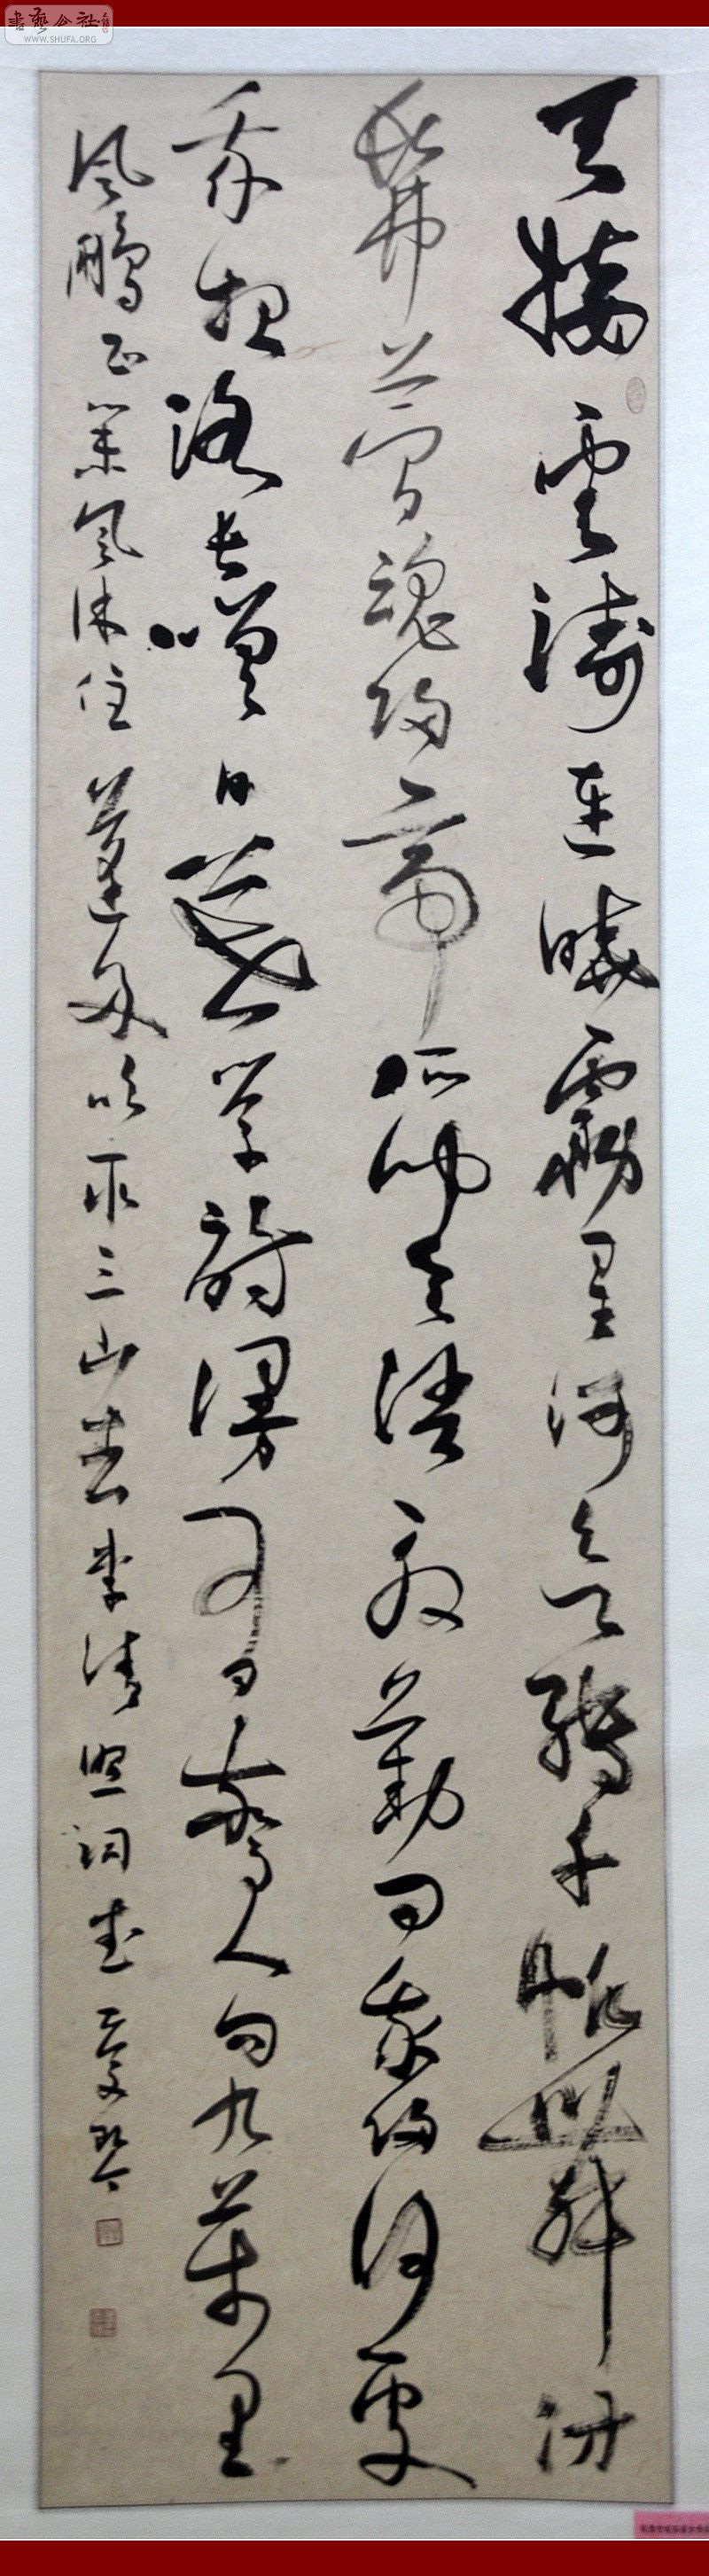 書藝公社
WWW.SHUFA.ORG
天接雲濤連曉霧星河欲轉千帆舞彷
髴夢魂歸帝所聞天語殷勤問我歸何處
我報路長嗟日暮學詩謾有驚人句九萬里
風鵬正舉風休住蓬舟吹取三山去李清照詞